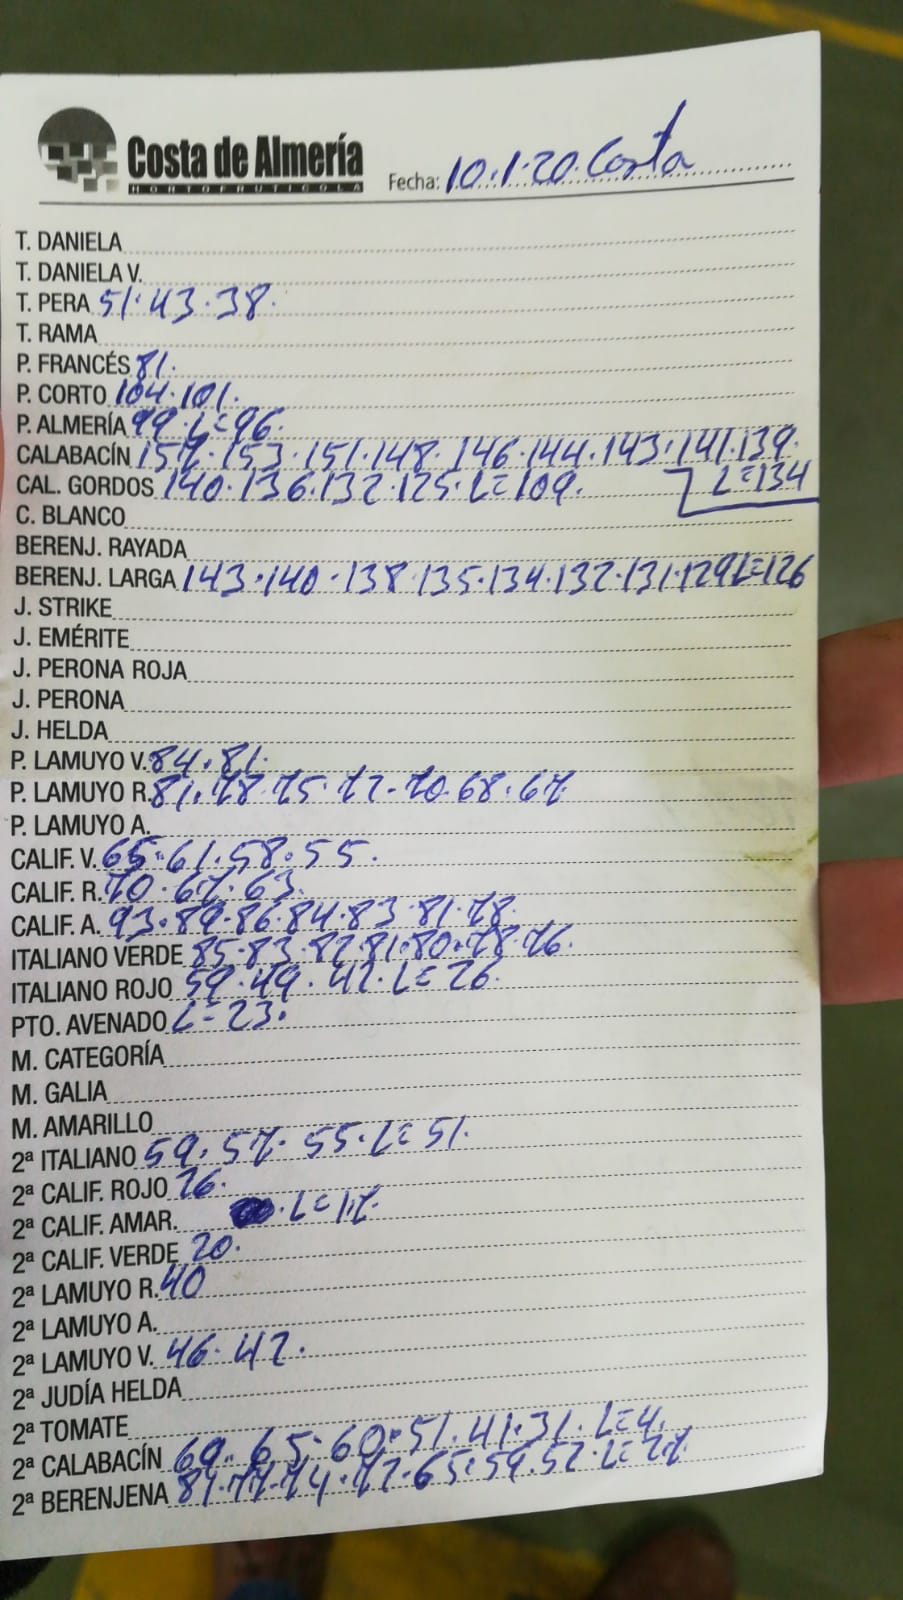 Costa de Almería
HORTOFRUTICOLA
Fecha: 10.1.20. Costa
T. DANIELA
T. DANIELA V.
T. PERA 51.43.38.
T. RAMA
P. FRANCÉS 81.
P. CORTO 104.101.
P. ALMERÍA 99.L=96.
CALABACÍN 157.153.151.148.146.144.143.141.139.
L=134
CAL. GORDOS 140.136.132.125.L=109.
C. BLANCO
BERENJ. RAYADA
BERENJ. LARGA 143.140.138.135.134.132.131.129L=126
J. STRIKE
J. EMÉRITE
J. PERONA ROJA
J. PERONA
J. HELDA
P. LAMUYO V. 84.81.
P. LAMUYO R. 81.78.75.72.70.68.67
P. LAMUYO A.
CALIF. V. 65.61.58.55.
CALIF. R. 70.67.63.
CALIF. A. 93.89.86.84.83.81.78.
ITALIANO VERDE 85.83.82.81.80.78.76.
ITALIANO ROJO 59.49.42.L=26.
PTO. AVENADO L=23.
M. CATEGORÍA
M. GALIA
M. AMARILLO
2ª ITALIANO 59.57.55.L=51.
2ª CALIF. ROJO 26.
2ª CALIF. AMAR. .L=17.
2ª CALIF. VERDE 20.
2ª LAMUYO R. 40
2ª LAMUYO A.
2ª LAMUYO V. 46.42.
2ª JUDÍA HELDA
2ª TOMATE
2ª CALABACÍN 69.65.60.51.41.31.L=4.
2ª BERENJENA 81.77.74.72.65.59.52.L=27.